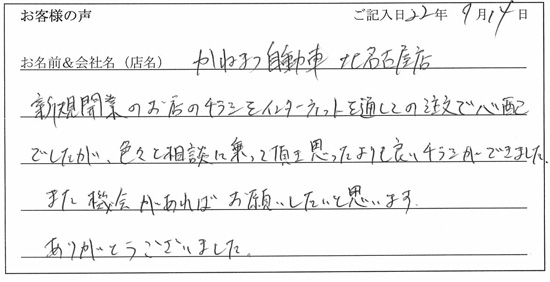 お客様の声 ご記入日22年 9月14日
お名前&会社名（店名） かねまつ自動車 北名古屋店
新規開業のお店のチラシをインターネットを通しての注文で心配
でしたが、色々と相談に乗って頂き思ったよりも良いチラシができました。
また機会があればお願いしたいと思います。
ありがとうございました。